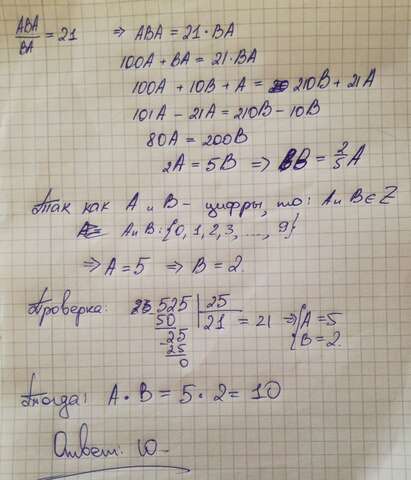 ABA/BA = 21 ⇒ ABA = 21 · BA
100A + BA = 21 · BA
100A + 10B + A = 210B + 21A
101A - 21A = 210B - 10B
80A = 200B
2A = 5B ⇒ B = 2/5 A
Так как A и B - цифры, то: A и B ∈ Z
A и B: {0, 1, 2, 3, ..., 9}
⇒ A = 5 ⇒ B = 2.
Проверка: 525 | 25
50 21 = 21 ⇒ { A = 5
25 { B = 2.
25
0
Тогда: A · B = 5 · 2 = 10
Ответ: 10